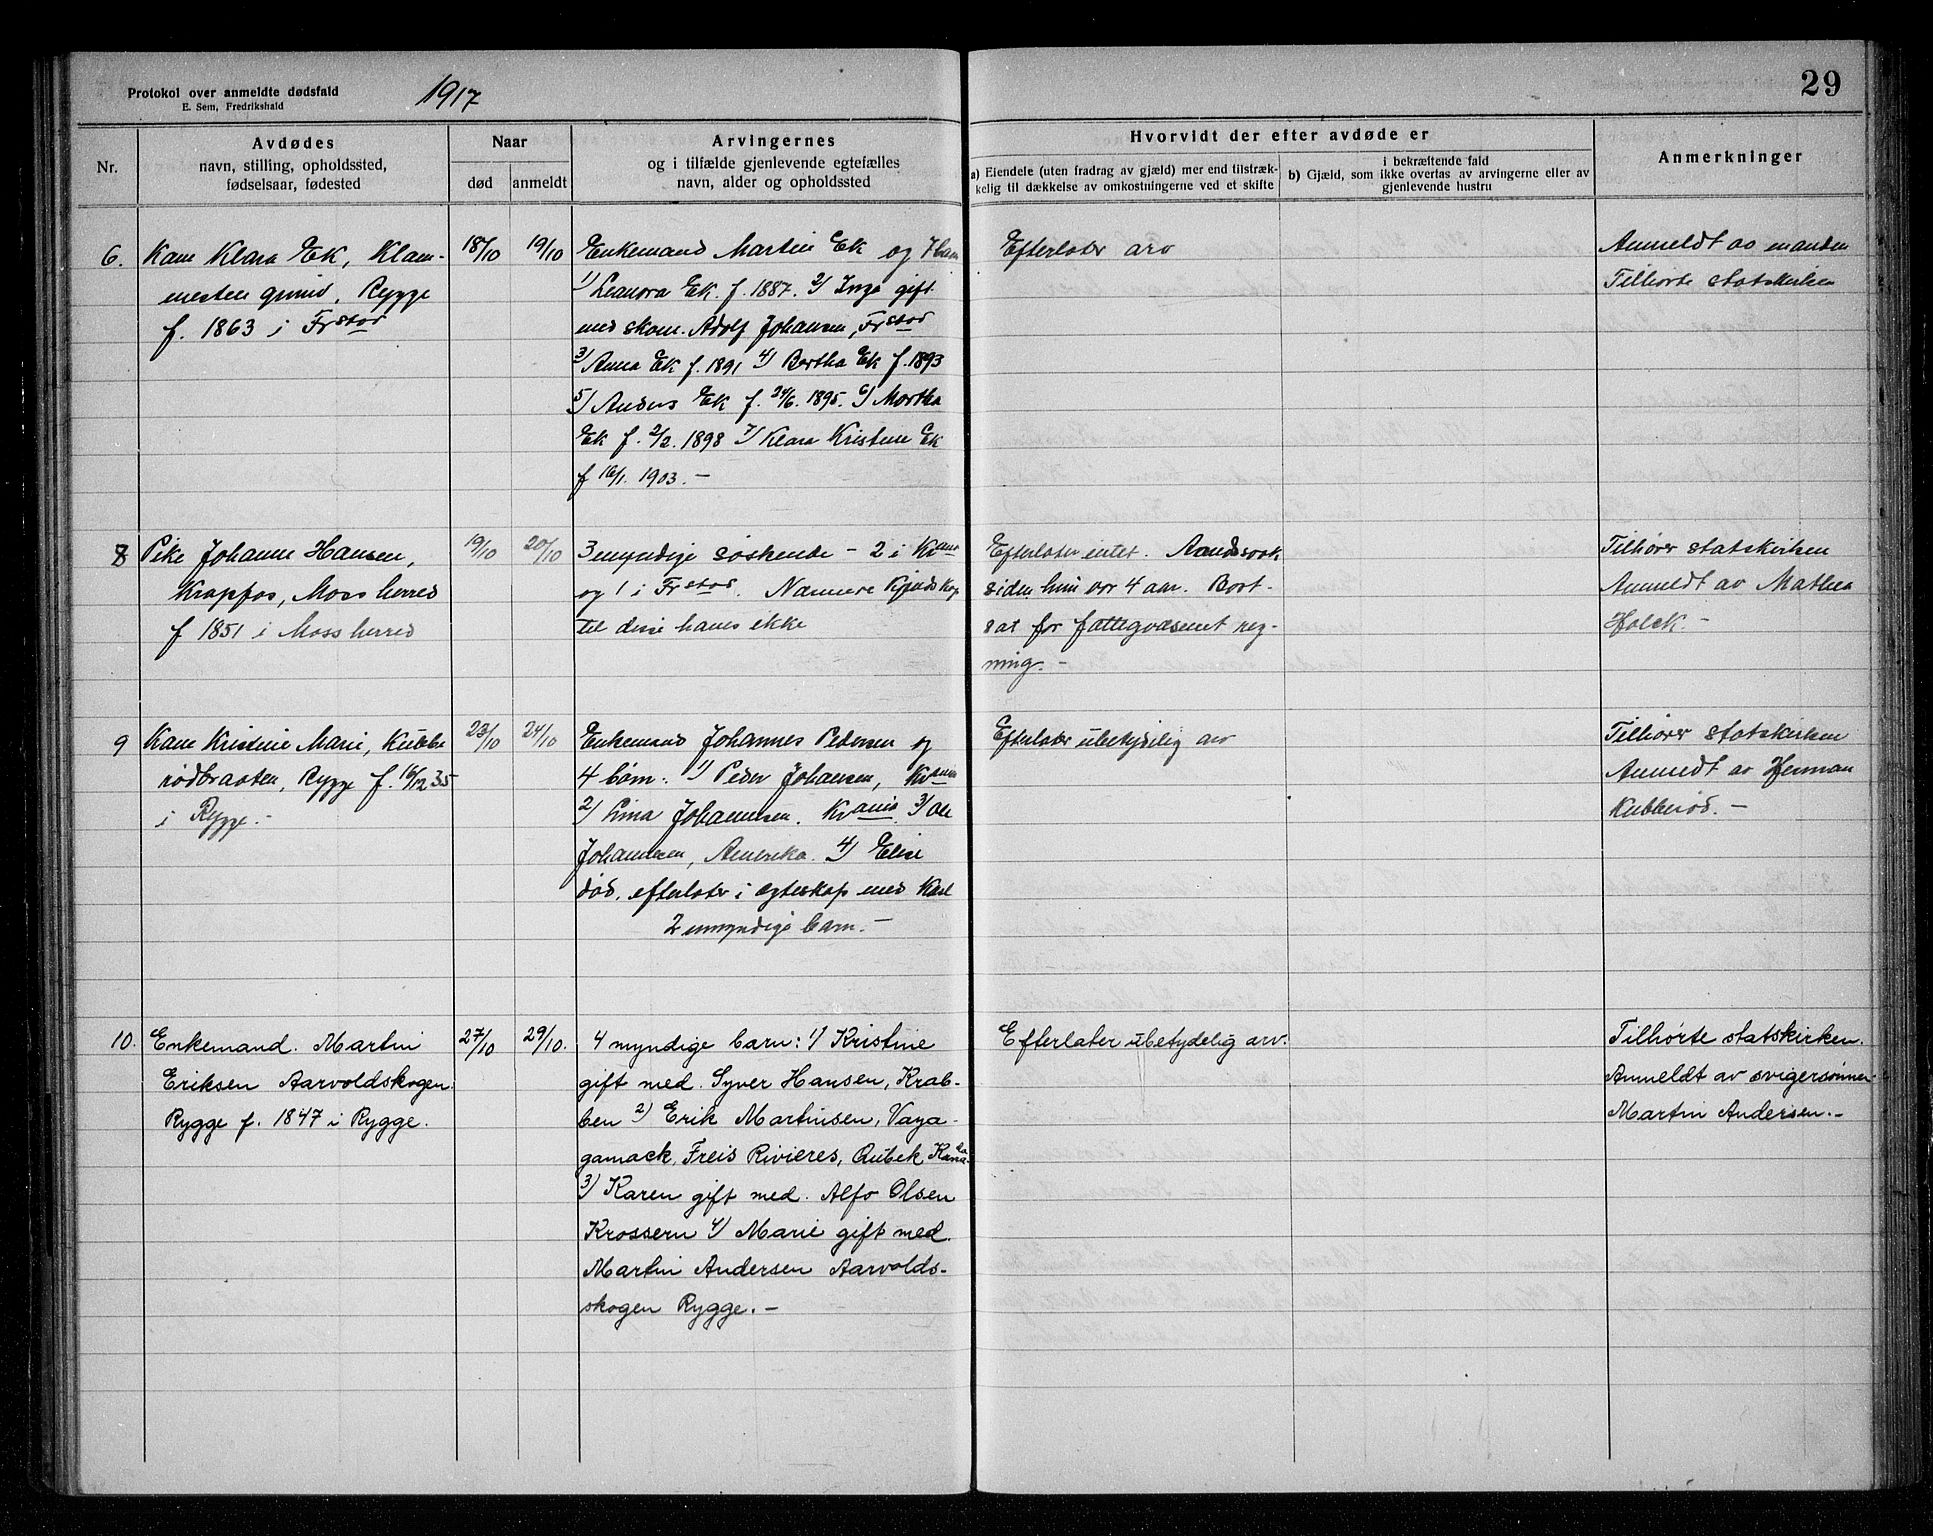 Protokol over anmeldte dødsfald
E. Sem, Fredrikshald
1917
29
Nr.
Avdødes
navn, stilling, opholdssted,
fødselsaar, fødested
Naar
død
anmeldt
Arvingernes
og i tilfælde gjenlevende egtefælles
navn, alder og opholdssted
Hvorvidt der efter avdøde er
a) Eiendele (uten fradrag av gjæld) mer end tilstræk-
kelig til dækkelse av omkostningerne ved et skifte
i bekræftende fald
b) Gjæld, som ikke overtas av arvingerne eller av
gjenlevende hustru
Anmerkninger
6.
Kone Klara Ek, Klom-
nesten grind, Rygge
f. 1863 i Frstad
18/10
19/10
Enkemand Martin Ek og 7 barn
1) Leanora Ek. f. 1887. 2) Inga gift
med skom. Adolf Johansen, Frstad
3) Anna Ek f. 1891 4) Bertha Ek f. 1893
5) Anders Ek f. 24/6. 1895. 6) Martha
Ek f. 2/2. 1898 7) Klara Kristine Ek
f 16/1. 1903. –
Efterlater arv
Anmeldt av manden
Tilhørte statskirken
8
Pike Johanne Hansen,
Krapfos, Moss herred
f 1851 i Moss herred
19/10
20/10
3 myndige søskende – 2 i Kr.ania
og 1 i Frstad. Nærmere kjendskap
til disse haves ikke
Efterlater intet. Aandssvak
siden hun var 4 aar. Bort-
sat for fattigvæsenet reg-
ning. –
Tilhører statskirken
Anmeldt av Mathea
Holck. –
9
Kone Kristine Marie, Kubbe
rødbraaten, Rygge f. 16/12 35
i Rygge. –
23/10
24/10
Enkemand Johannes Pedersen og
4 barn. 1) Peder Johansen, Kr.ania
2) Lina Johannesen. Kr.ania 3) Ole
Johannesen, Amerika. 4) Elise
død, efterlater i egteskap med Karl
2 umyndige barn. –
Efterlater ubetydelig arv
Tilhører statskirken
Anmeldt av Herman
Kubberød. –
10.
Enkemand. Martin
Eriksen Aarvoldskogen.
Rygge f. 1847 i Rygge.
27/10
29/10.
4 myndige barn: 1) Kristine
gift med. Syver Hansen, Krab-
ben 2) Erik Martinsen, Vaya-
gamack, Freis Rivieres, Qubek Kanada
3) Karen gift med. Alfo Olsen
Krossern 4) Marie gift med.
Martin Andersen Aarvolds-
skogen Rygge. –
Efterlater ubetydelig arv.
Tilhørte statskirken.
Anmeldt av svigersønnen
Martin Andersen. –